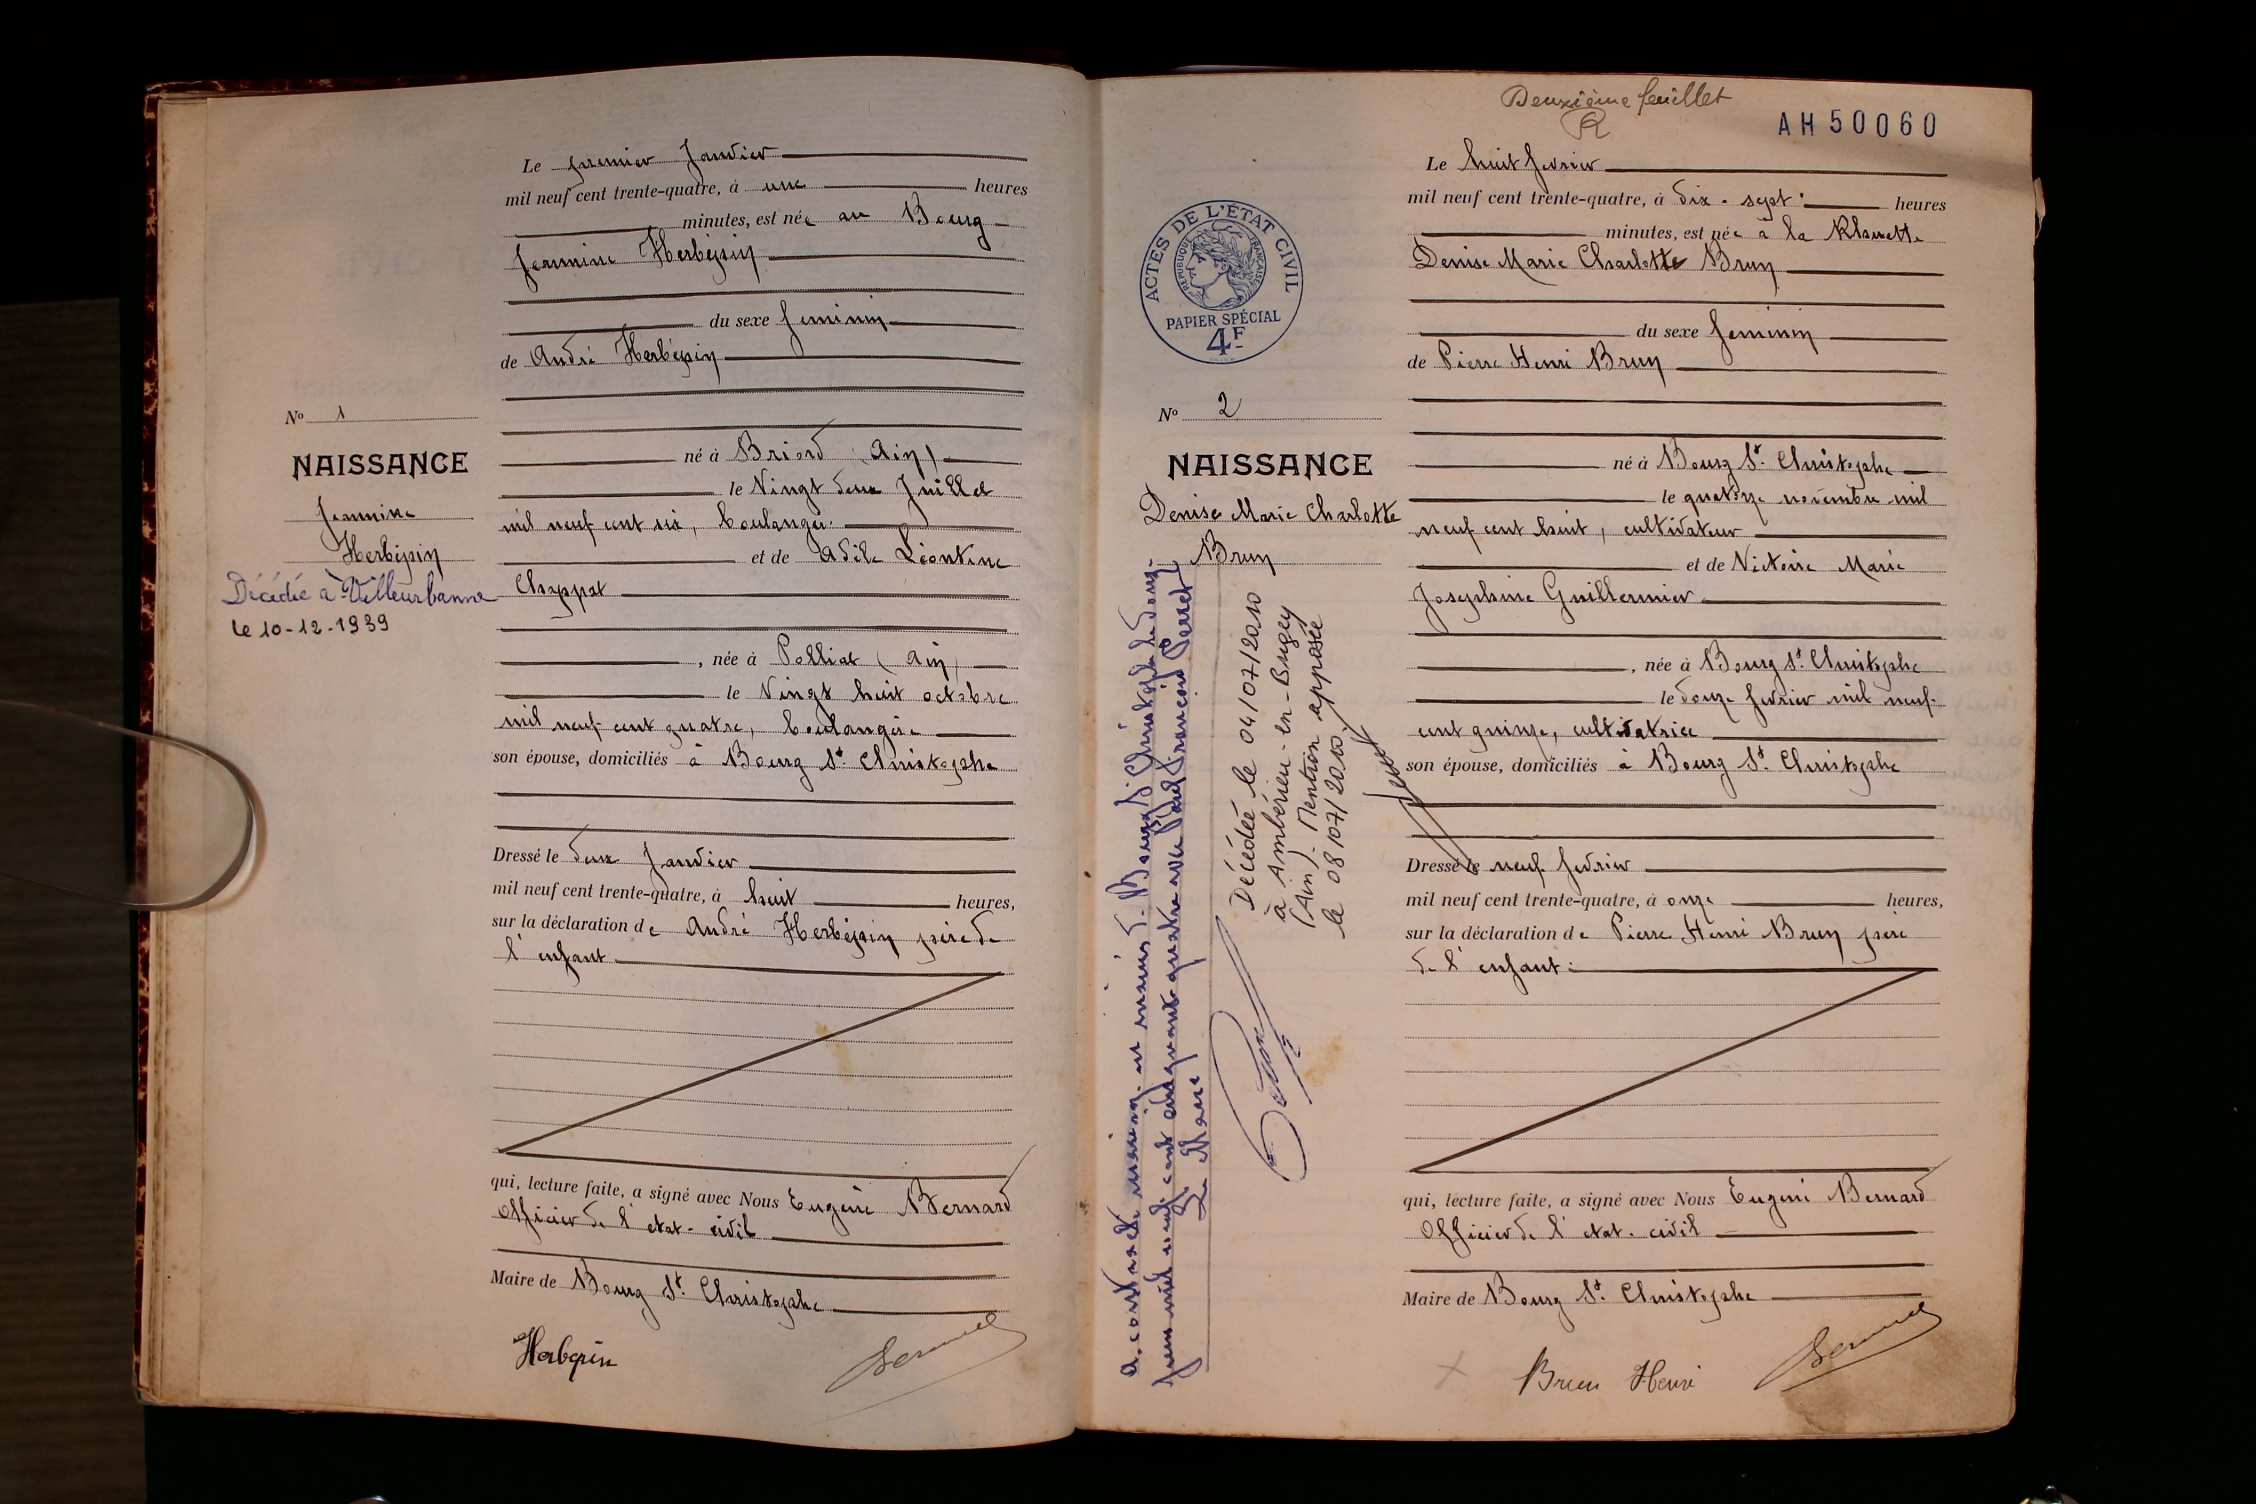 Le premier Janvier
mil neuf cent trente-quatre, à une heures
minutes, est née au Bourg
Jeannine Herbépin
du sexe feminin
de André Herbépin
né à Briord (Ain)
le Vingt deux Juillet
mil neuf cent six, boulanger.
et de Adèle Léontine
Chappat
, née à Polliat (Ain)
le Vingt huit octobre
mil neuf cent quatre, boulangère
son épouse, domiciliés à Bourg St. Christophe
Dressé le deux Janvier
mil neuf cent trente-quatre, à huit heures,
sur la déclaration de André Herbépin père de
l'enfant
qui, lecture faite, a signé avec Nous Eugène Bernard
Officier de l'etat-civil
Maire de Bourg St. Christophe
Herbepin
Bernard
No 1
NAISSANCE
Jeannine
Herbépin
Décédée à Villeurbanne
le 10-12-1939
Deuxième feuillet
AH50060
ACTES DE L'ÉTAT CIVIL
RÉPUBLIQUE FRANÇAISE
PAPIER SPÉCIAL
4F
No 2
NAISSANCE
Denise Marie Charlotte
Brun
a contracté mariage en mairie de Bourg St Christophe le douze
juin mil neuf cent cinquante quatre avec Paul François Perret
Le Maire
Décédée le 04/07/2010
à Ambérieu-en-Bugey
(Ain). Mention apposée
le 08/07/2010.
Le huit fevrier
mil neuf cent trente-quatre, à dix-sept heures
minutes, est née à la
Denise Marie Charlotte Brun
du sexe feminin
de Pierre Henri Brun
né à Bourg St. Christophe
le quatorze novembre mil
neuf cent huit, cultivateur
et de Victoire Marie
Josephine Guillermier
, née à Bourg St. Christophe
le douze fevrier mil neuf
cent quinze, cultivatrice
son épouse, domiciliés à Bourg St. Christophe
Dressé le neuf fevrier
mil neuf cent trente-quatre, à onze heures,
sur la déclaration de Pierre Henri Brun père
de l'enfant
qui, lecture faite, a signé avec Nous Eugène Bernard
Officier de l'etat-civil
Maire de Bourg St. Christophe
Brun Henri
Bernard